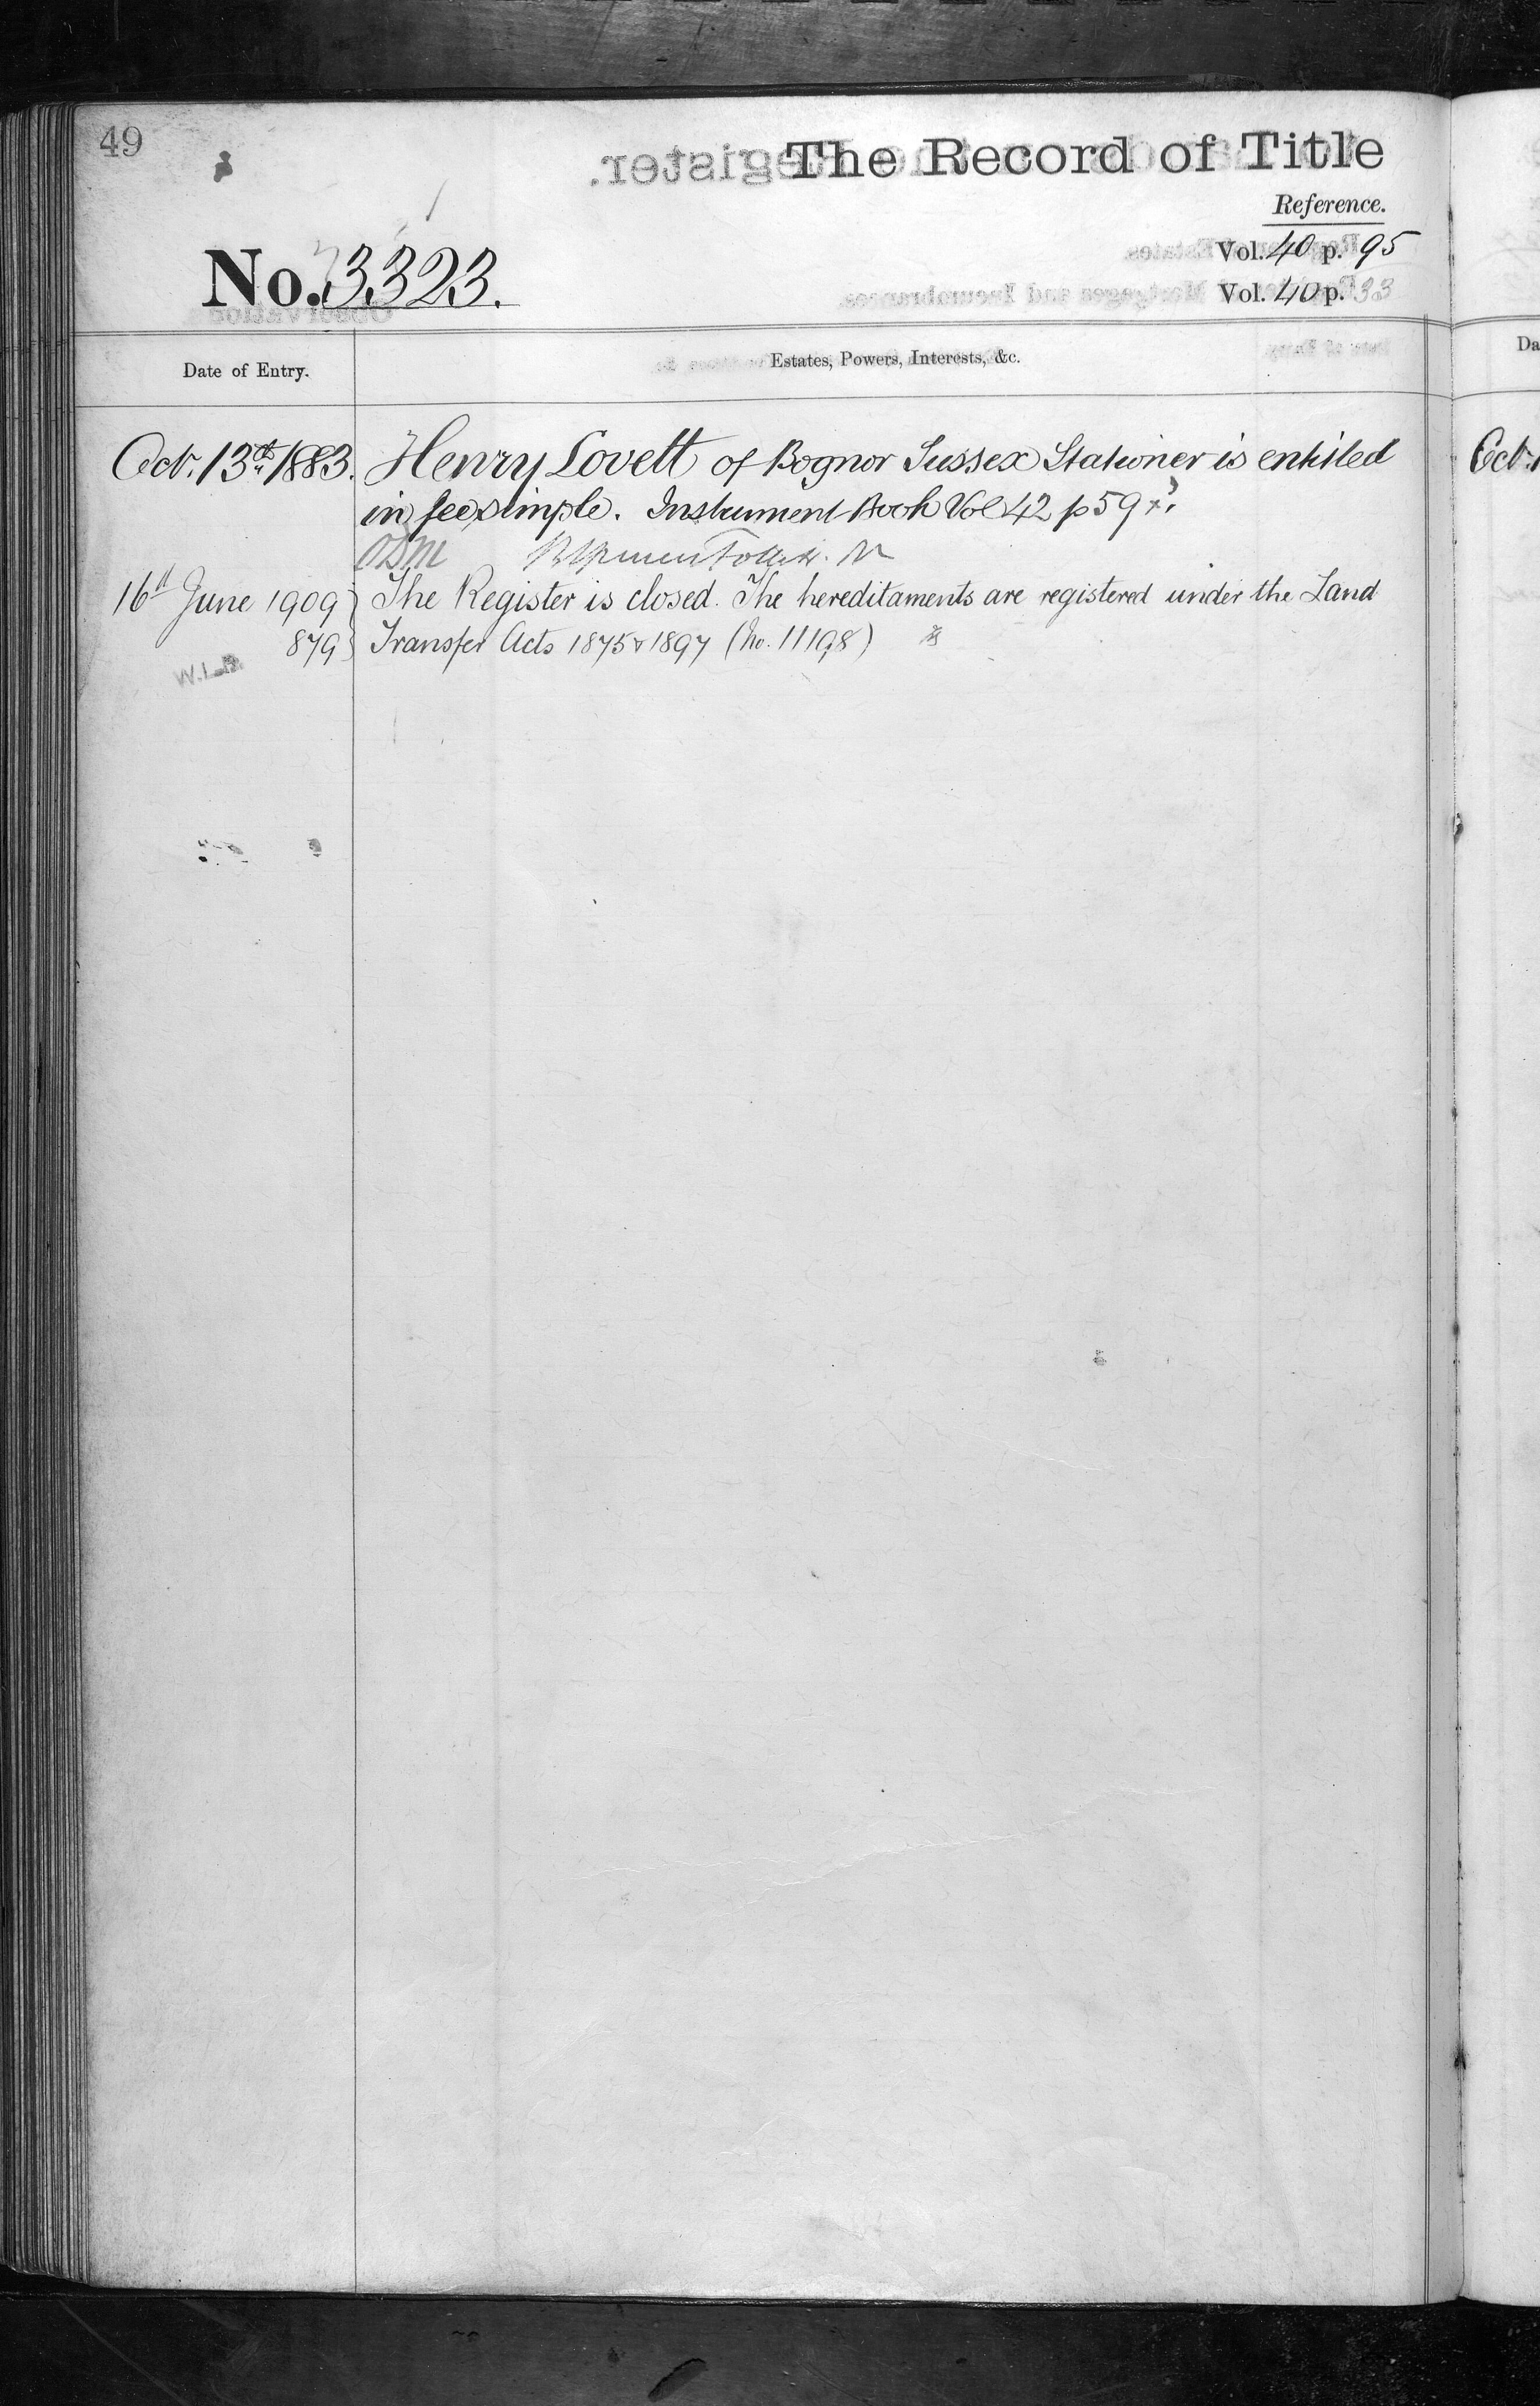 49
The Record of Title
Reference.
Vol. 40 p. 95
No. 3323.
Vol. 40 p. 33
Date of Entry.
Estates, Powers, Interests, &c.
Oct. 13th 1883. Henry Lovett of Bognor Sussex Stationer is entitled
in fee simple. Instrument Book Vol 42 p 59
16th June 1909 } The Register is closed. The hereditaments are registered under the Land
879 } Transfer Acts 1875 & 1897 (No. 11198)
W.L.B.
Da
Oct. 1